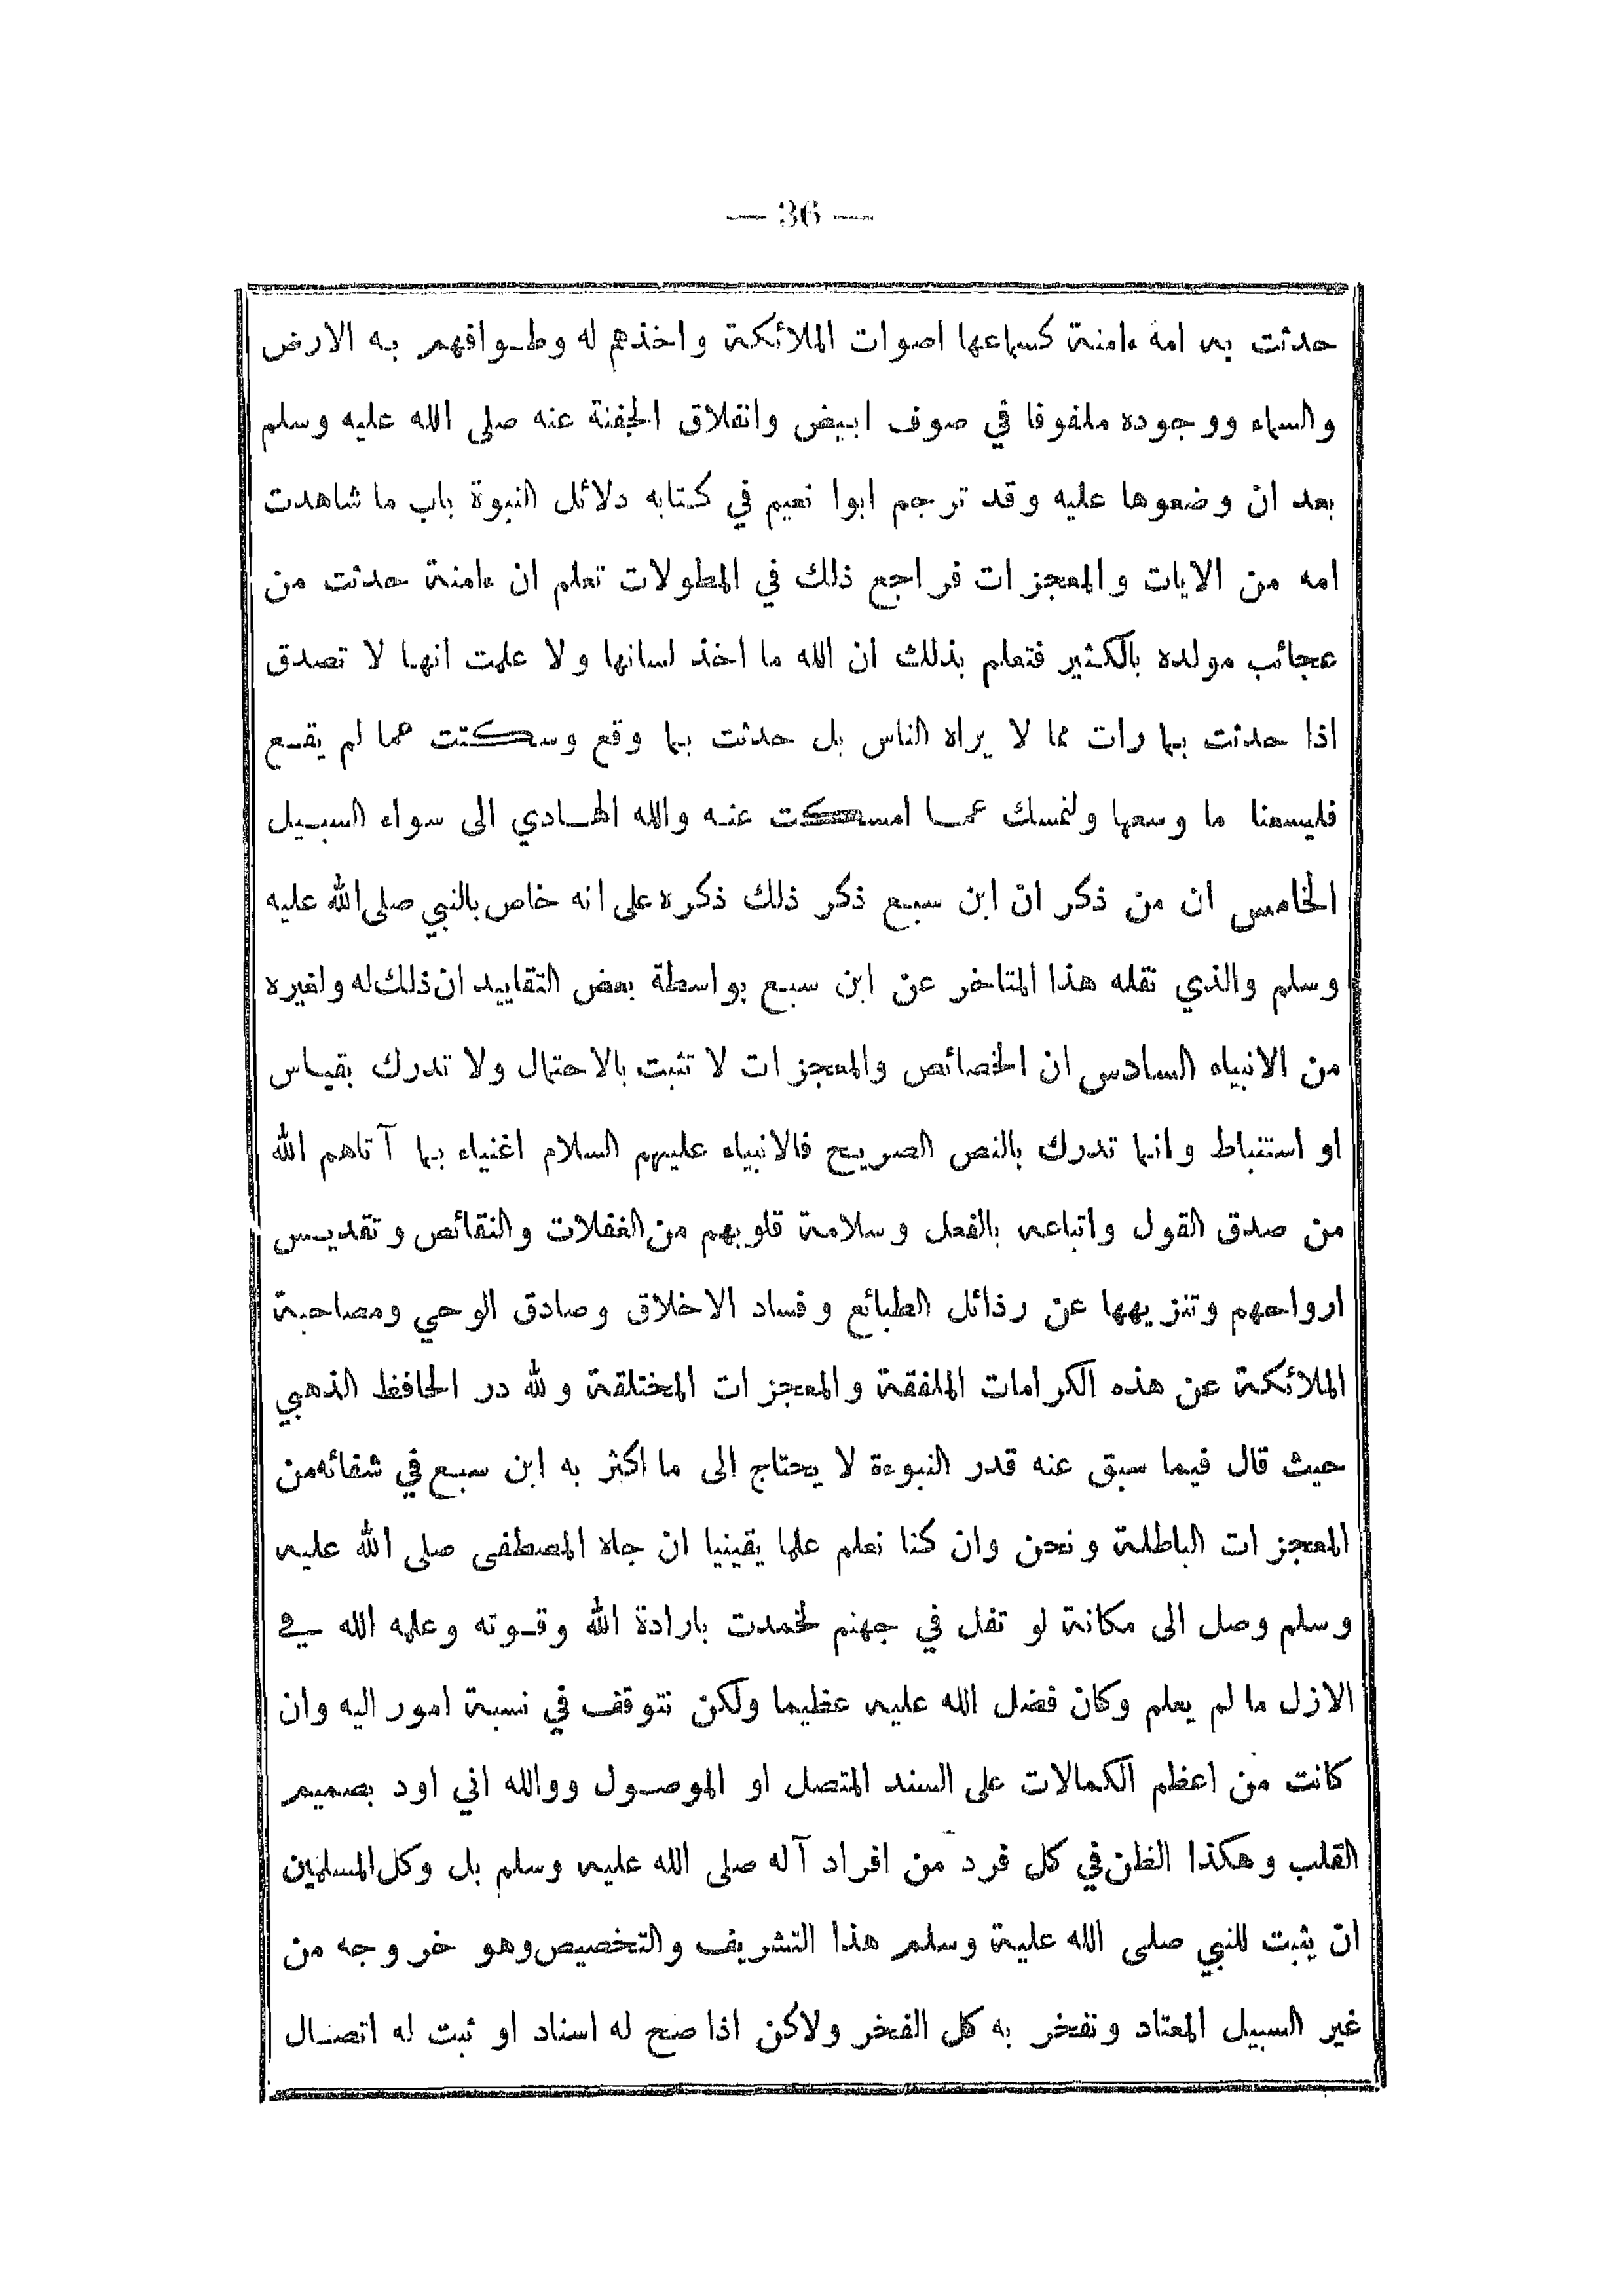 — 36 —
حدثت به امه ءامنة كسماعها اصوات الملائكة واخذهم له وطوافهم به الارض
والسماء ووجوده ملفوفا في صوف ابيض وانفلاق الجفنة عنه صلى الله عليه وسلم
بعد ان وضعوها عليه وقد ترجم ابوا نعيم في كتابه دلائل النبوة باب ما شاهدت
امه من الايات والمعجزات فراجع ذلك في المطولات تعلم ان ءامنة حدثت من
عجائب مولده بالكثير فتعلم بذلك ان الله ما اخذ لسانها ولا علمت انها لا تصدق
اذا حدثت بما رات مما لا يراه الناس بل حدثت بما وقع وسكتت عما لم يقع
فليسعنا ما وسعها ولنمسك عما امسكت عنه والله الهادي الى سواء السبيل
الخامس ان من ذكر ان ابن سبع ذكر ذلك ذكره على انه خاص بالنبي صلى الله عليه
وسلم والذي نقله هذا المتاخر عن ابن سبع بواسطة بعض التقاييد ان ذلك له ولغيره
من الانبياء السادس ان الخصائص والمعجزات لا تثبت بالاحتمال ولا تدرك بقياس
او استنباط وانما تدرك بالنص الصريح فالانبياء عليهم السلام اغنياء بما آتاهم الله
من صدق القول واتباعه بالفعل وسلامة قلوبهم من الغفلات والنقائص وتقديس
ارواحهم وتنزيهها عن رذائل الطبائع وفساد الاخلاق وصادق الوحي ومصاحبة
الملائكة عن هذه الكرامات الملفقة والمعجزات المختلقة ولله در الحافظ الذهبي
حيث قال فيما سبق عنه قدر النبوءة لا يحتاج الى ما اكثر به ابن سبع في شفائه من
المعجزات الباطلة ونحن وان كنا نعلم علما يقينيا ان جاه المصطفى صلى الله عليه
وسلم وصل الى مكانة لو تفل في جهنم لخمدت بارادة الله وقوته وعلمه الله في
الازل ما لم يعلم وكان فضل الله عليه عظيما ولكن نتوقف في نسبة امور اليه وان
كانت من اعظم الكمالات على السند المتصل او الموصول ووالله اني اود بصميم
القلب وهكذا الظن في كل فرد من افراد آله صلى الله عليه وسلم بل وكل المسلمين
ان يثبت للنبي صلى الله علية وسلم هذا التشريف والتخصيص وهو خروجه من
غير السبيل المعتاد ونفتخر به كل الفخر ولاكن اذا صح له اسناد او ثبت له اتصال